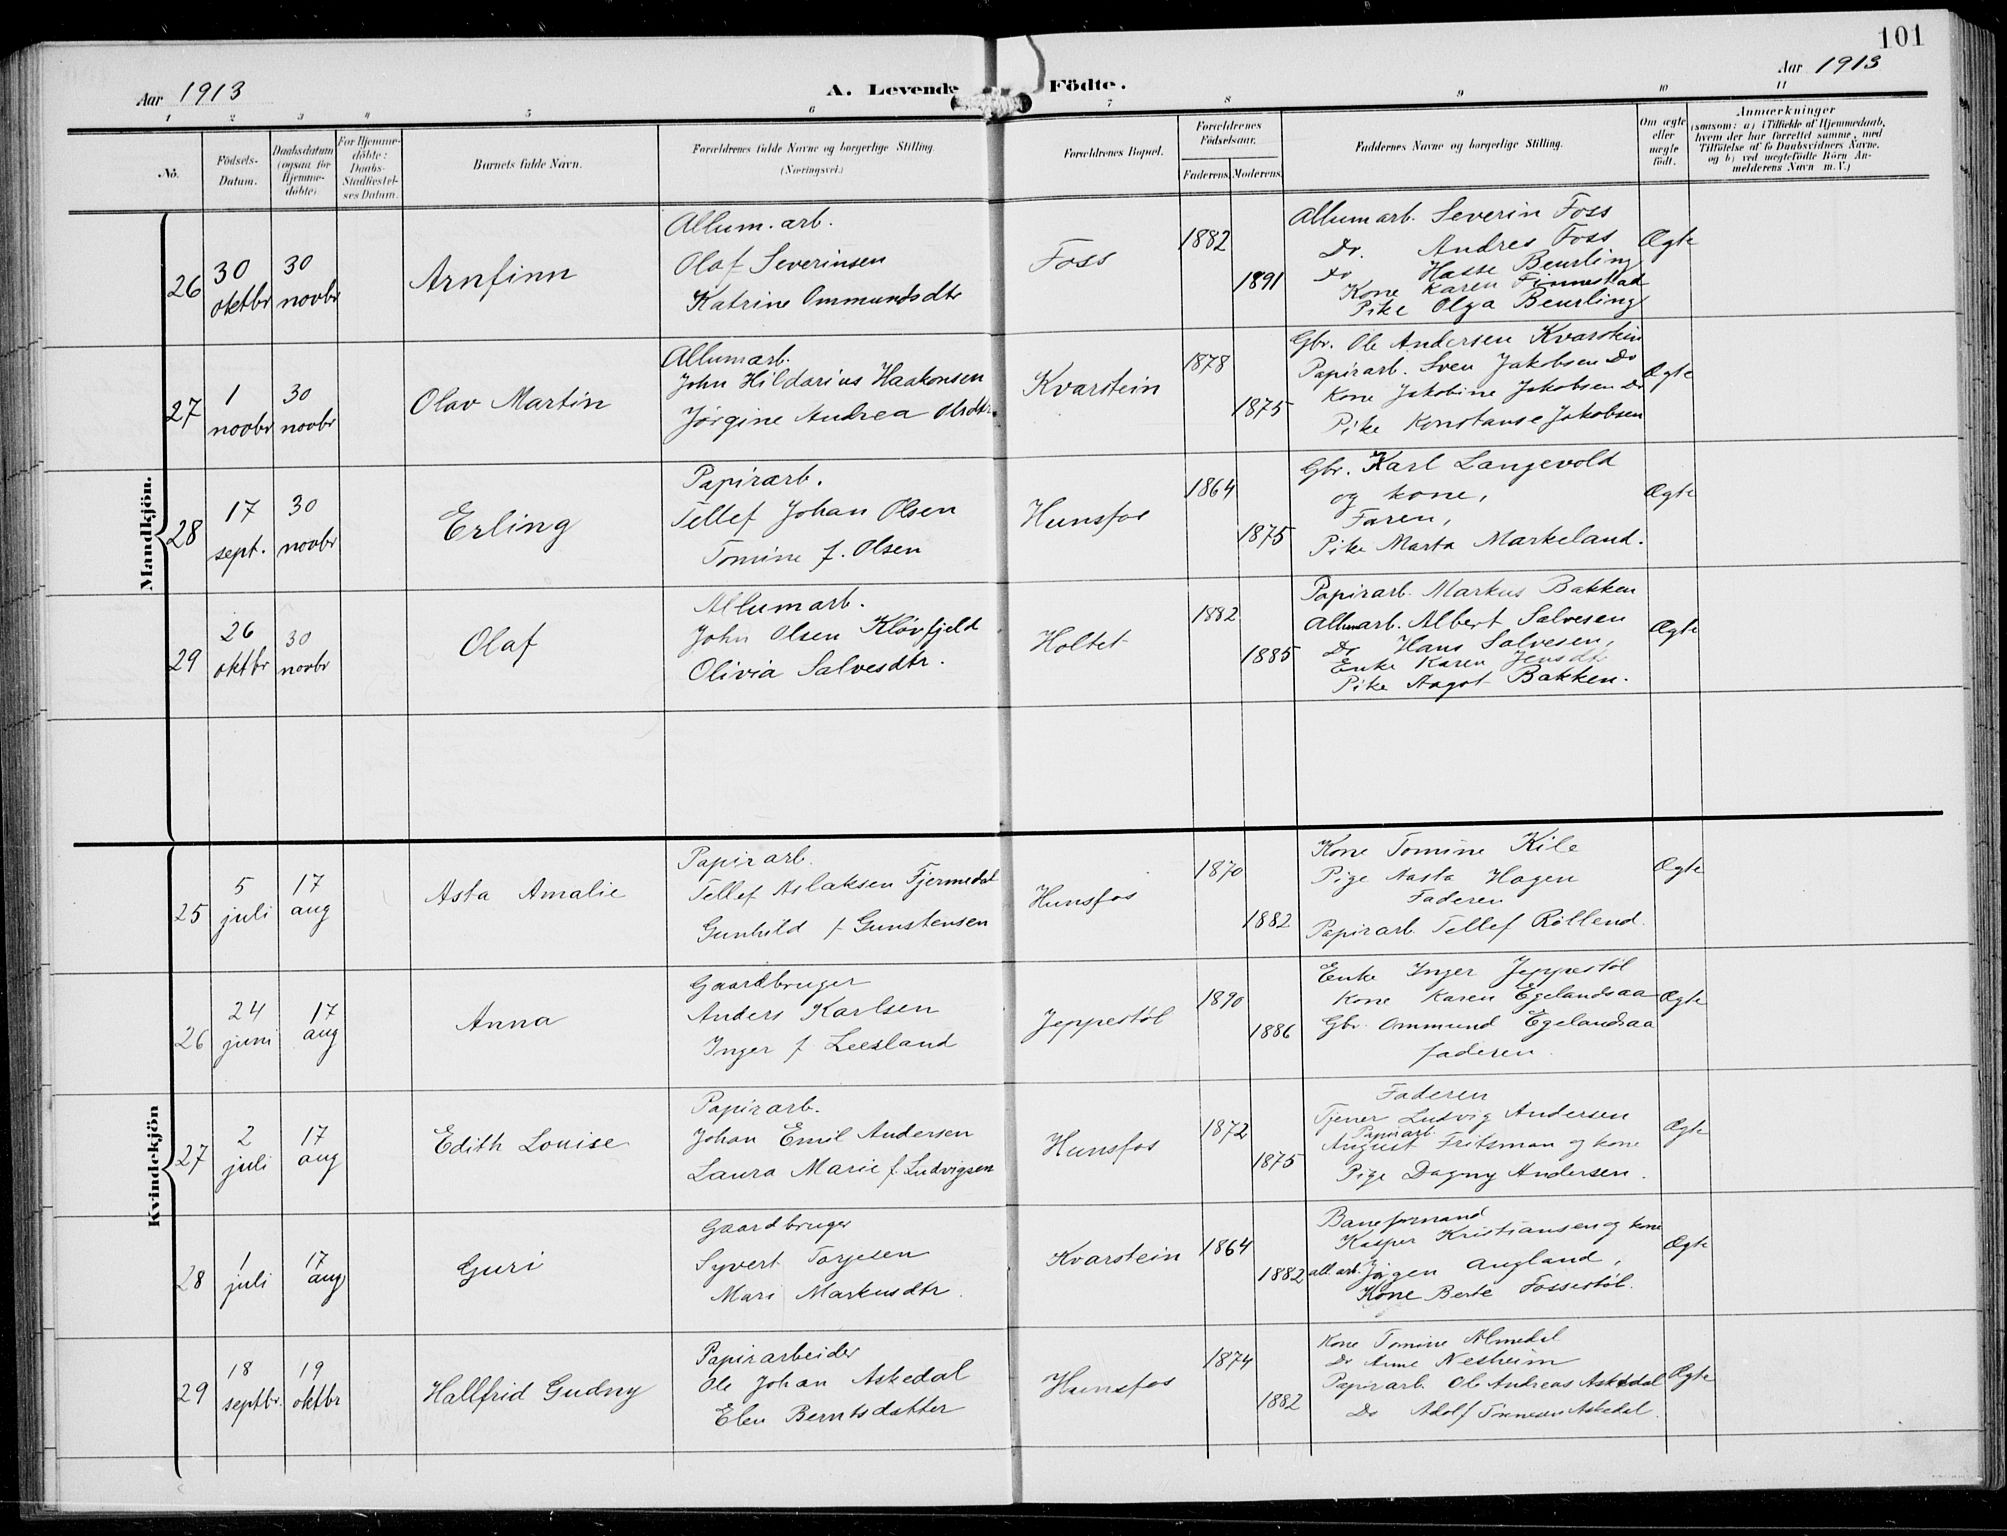 101
Aar 1913
A. Levende Födte.
Aar 1913
1 2 3 4 5 6 7 8 9 10 11
No.
Födsels-Datum.
Daabsdatum (ogsaa for Hjemme-döbte).
For Hjemme-döbte: Daabs-Stadfæstel-ses Datum.
Barnets fulde Navn.
Forældrenes fulde Navne og borgerlige Stilling. (Næringsvei.)
Forældrenes Bopæl.
Forældrenes Födselsaar.
Faderens. Moderens.
Faddernes Navne og borgerlige Stilling.
Om ægte eller uægte födt.
Anmærkninger
(saasom: a) i Tilfælde af Hjemmedaab, hvem der har forrettet samme, med Tilföielse af to Daabsvidners Navne. og b) ved uægtefödte Börn An-melderens Navn m. V.)
Mandkjön.
26
30 oktbr
30 novbr
Arnfinn
Allum. arb.
Olaf Severinsen
Katrine Ommundsdtr
Foss
1882
1891
Allumarb. Severin Foss
Do. Andres Foss
Do Hasse Beurling
Kone Karen Finnestad
Pike Olga Beurling
Ægte
27
1 novbr
30 novbr
Olav Martin
Allumarb.
John Hildarius Haakonsen
Jørgine Andrea Olsdtr.
Kvarstein
1878
1875
Gbr. Ole Andersen Kvarstein
Papirarb. Sven Jakobsen Do
Kone Jakobine Jakobsen Do
Pike Konstanse Jakobsen
Ægte
28
17 sept.
30 novbr
Erling
Papirarb.
Tellef Johan Olsen
Tomine f. Olsen
Hunsfos
1864
1875
Gbr. Karl Langevold
og kone,
Faren,
Pike Marta Markeland.
Ægte
29
26 oktbr
30 novbr
Olaf
Allumarb.
John Olsen Kløvfjeld
Olivia Salvesdtr.
Holtet
1882
1885
Papirarb. Markus Bakken
Allumarb. Albert Salvesen
Do Hans Salvesen,
Enke Karen Jensdtr
Pike Aagot Bakken.
Ægte
Kvindekjön
25
5 juli
17 aug
Asta Amalie
Papirarb.
Tellef Aslaksen Tjermsdal
Gunhild f Gunstensen
Hunsfos
1870
1882
Kone Tomine Kile
Pige Aasta Hagen
Faderen
Papirarb. Tellef Rölland.
Ægte
26
24 juni
17 aug
Anna
Gaardbruger
Anders Karlsen
Inger f. Leesland
Jeppestöl
1890
1886
Enke Inger Jeppestöl
Kone Karen Egelandsaa
Gbr. Ommund Egelandsaa
faderen.
Ægte
27
2 juli
17 aug
Edith Louise
Papirarb.
Johan Emil Andersen
Laura Marie f. Ludvigsen
Hunsfos
1872
1875
Faderen
Tjener Ludvig Andersen
Papirarb.
August Fritsman og kone
Pige Dagny Andersen.
Ægte
28
1 juli
17 aug
Guri
Gaardbruger
Syvert Torjesen
Mari Markusdtr.
Kvarstein
1864
1882
Baneformand
Kasper Kristiansen og kone
all. arb. Jörgen Augland,
Kone Berte Fossestöl.
Ægte
29
18 septbr.
19 oktbr
Hallfrid Gudny
Papirarbeider
Ole Johan Askedal
Elen Berntsdatter
Hunsfos
1874
1882
Kone Tomine Almedal
Do Anne Nesheim
Papirarb. Ole Andreas Askedal
Do Adolf Tønnesen Askedal.
Ægte